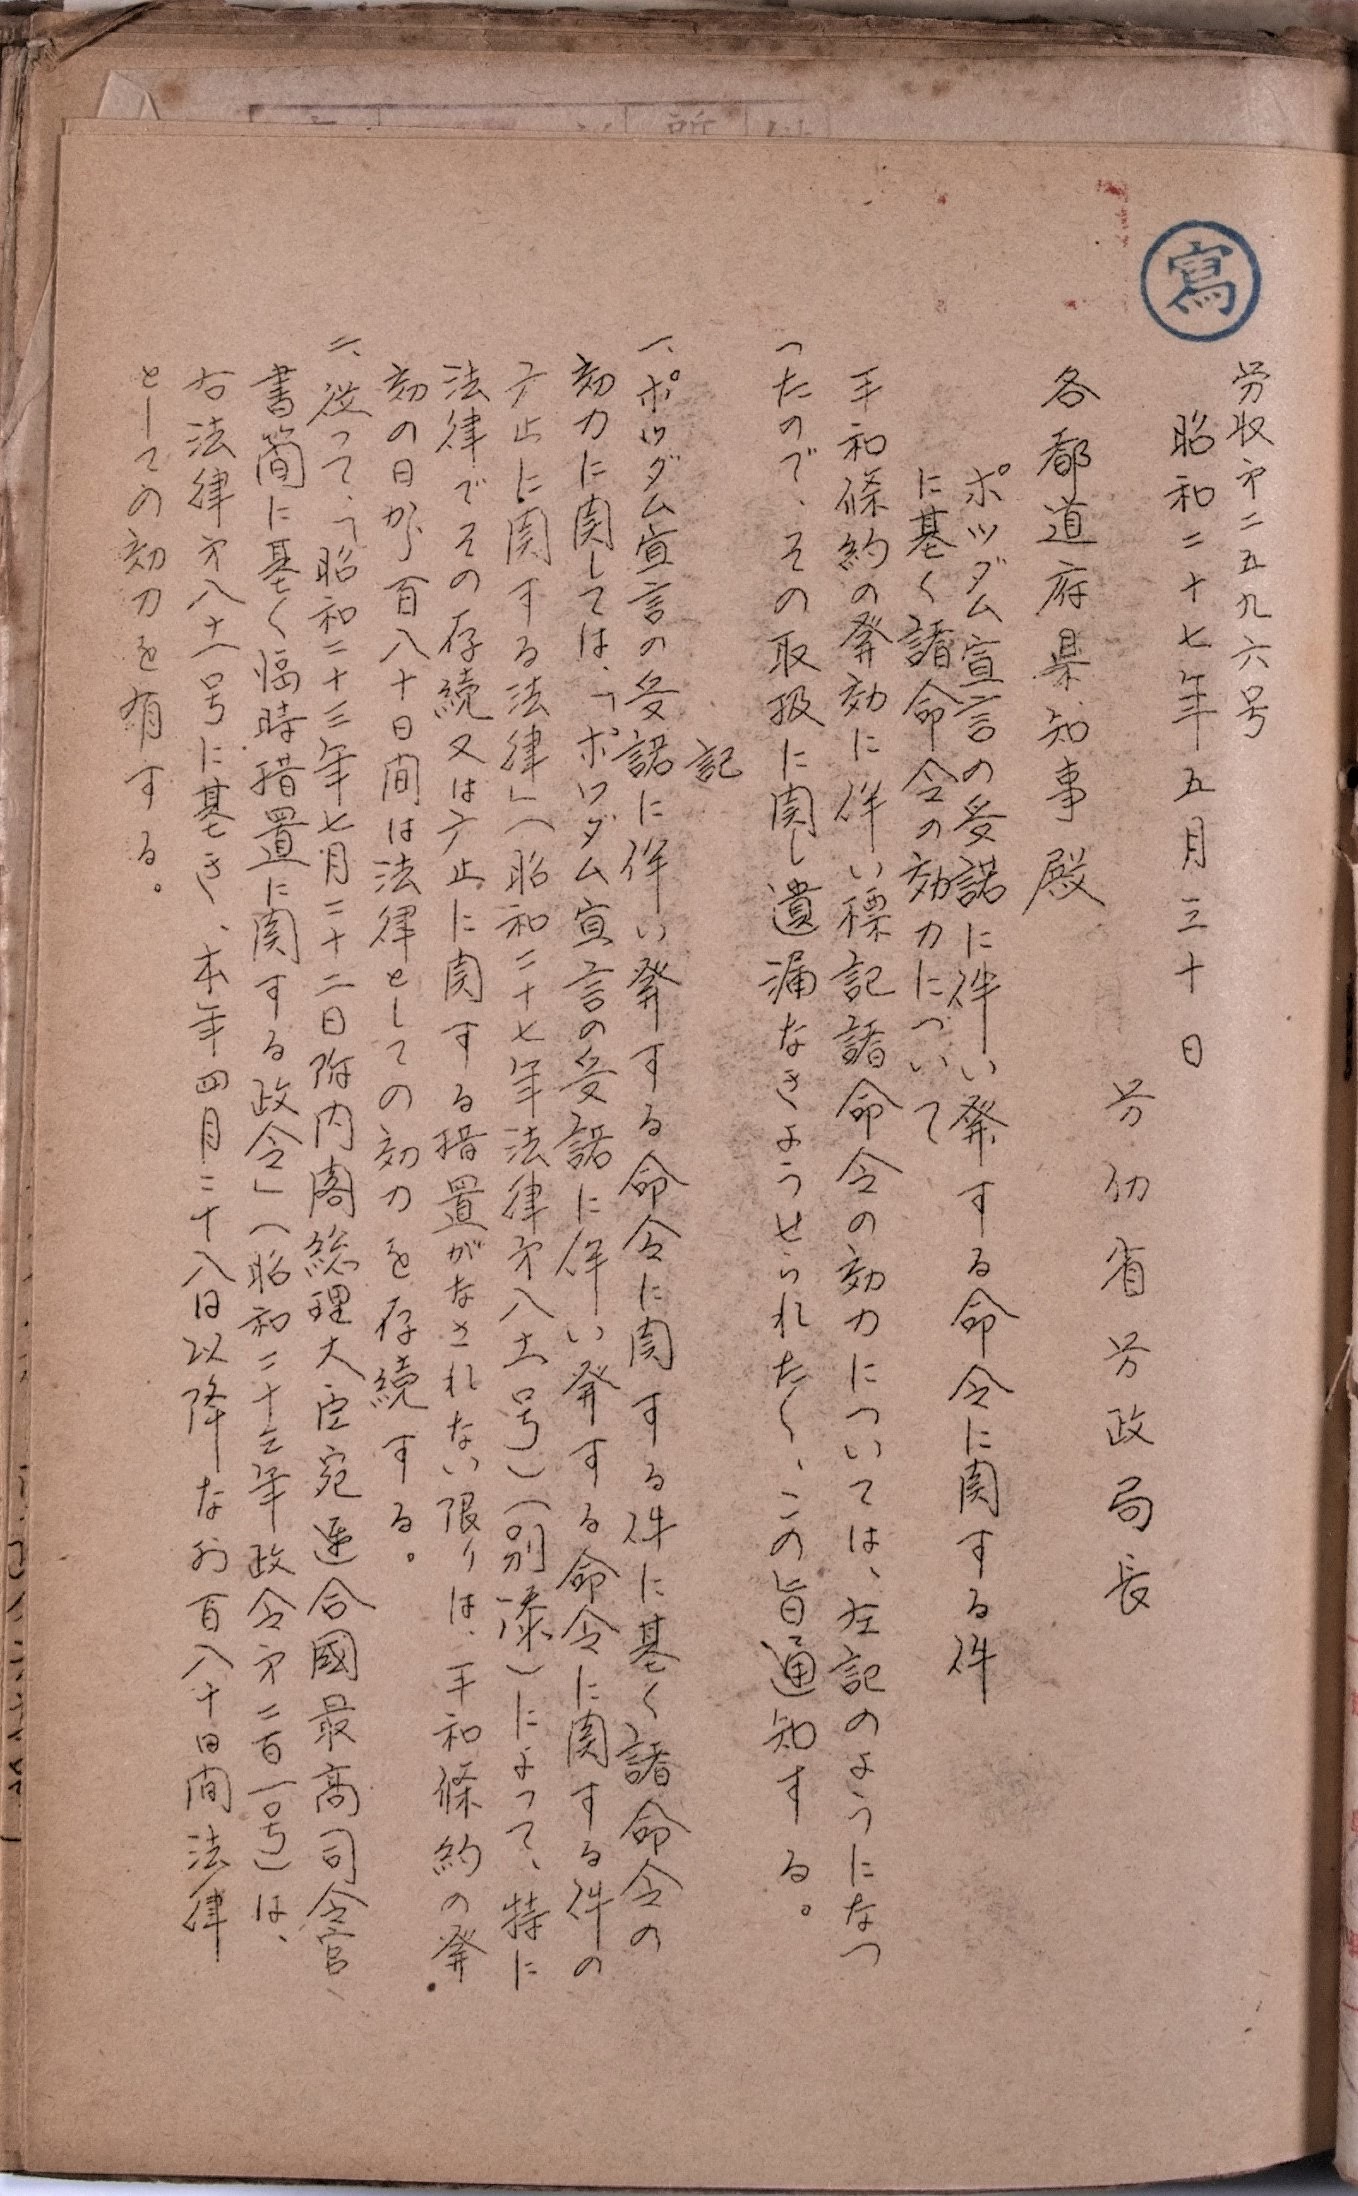 寫
労収第二五九六号
昭和二十七年五月三十日
労仂省労政局長
各都道府県知事殿
ポツダム宣言の受諾に伴い発する命令に関する件
に基く諸命令の効力について
平和條約の発効に伴い標記諸命令の効力については、左記のようになつ
つたので、その取扱に関し遺漏なきようせられたく、この旨通知する。
記
一、ポツダム宣言の受諾に伴い発する命令に関する件に基く諸命令の
効力に関しては、「ポツダム宣言の受諾に伴い発する命令に関する件の
廃止に関する法律」(昭和二十七年法律第八十一号)(別添)によつて、特に
法律でその存続又は廃止に関する措置がなされない限りは、平和條約の発
効の日から百八十日間は法律としての効力を存続する。
二、従つて、「昭和二十三年七月二十二日附内閣総理大臣宛連合國最高司令官
書簡に基く臨時措置に関する政令」(昭和二十三年政令第二百一号)は、
右法律第八十一号に基き、本年四月二十八日以降なお百八十日間法律
としての効力を有する。